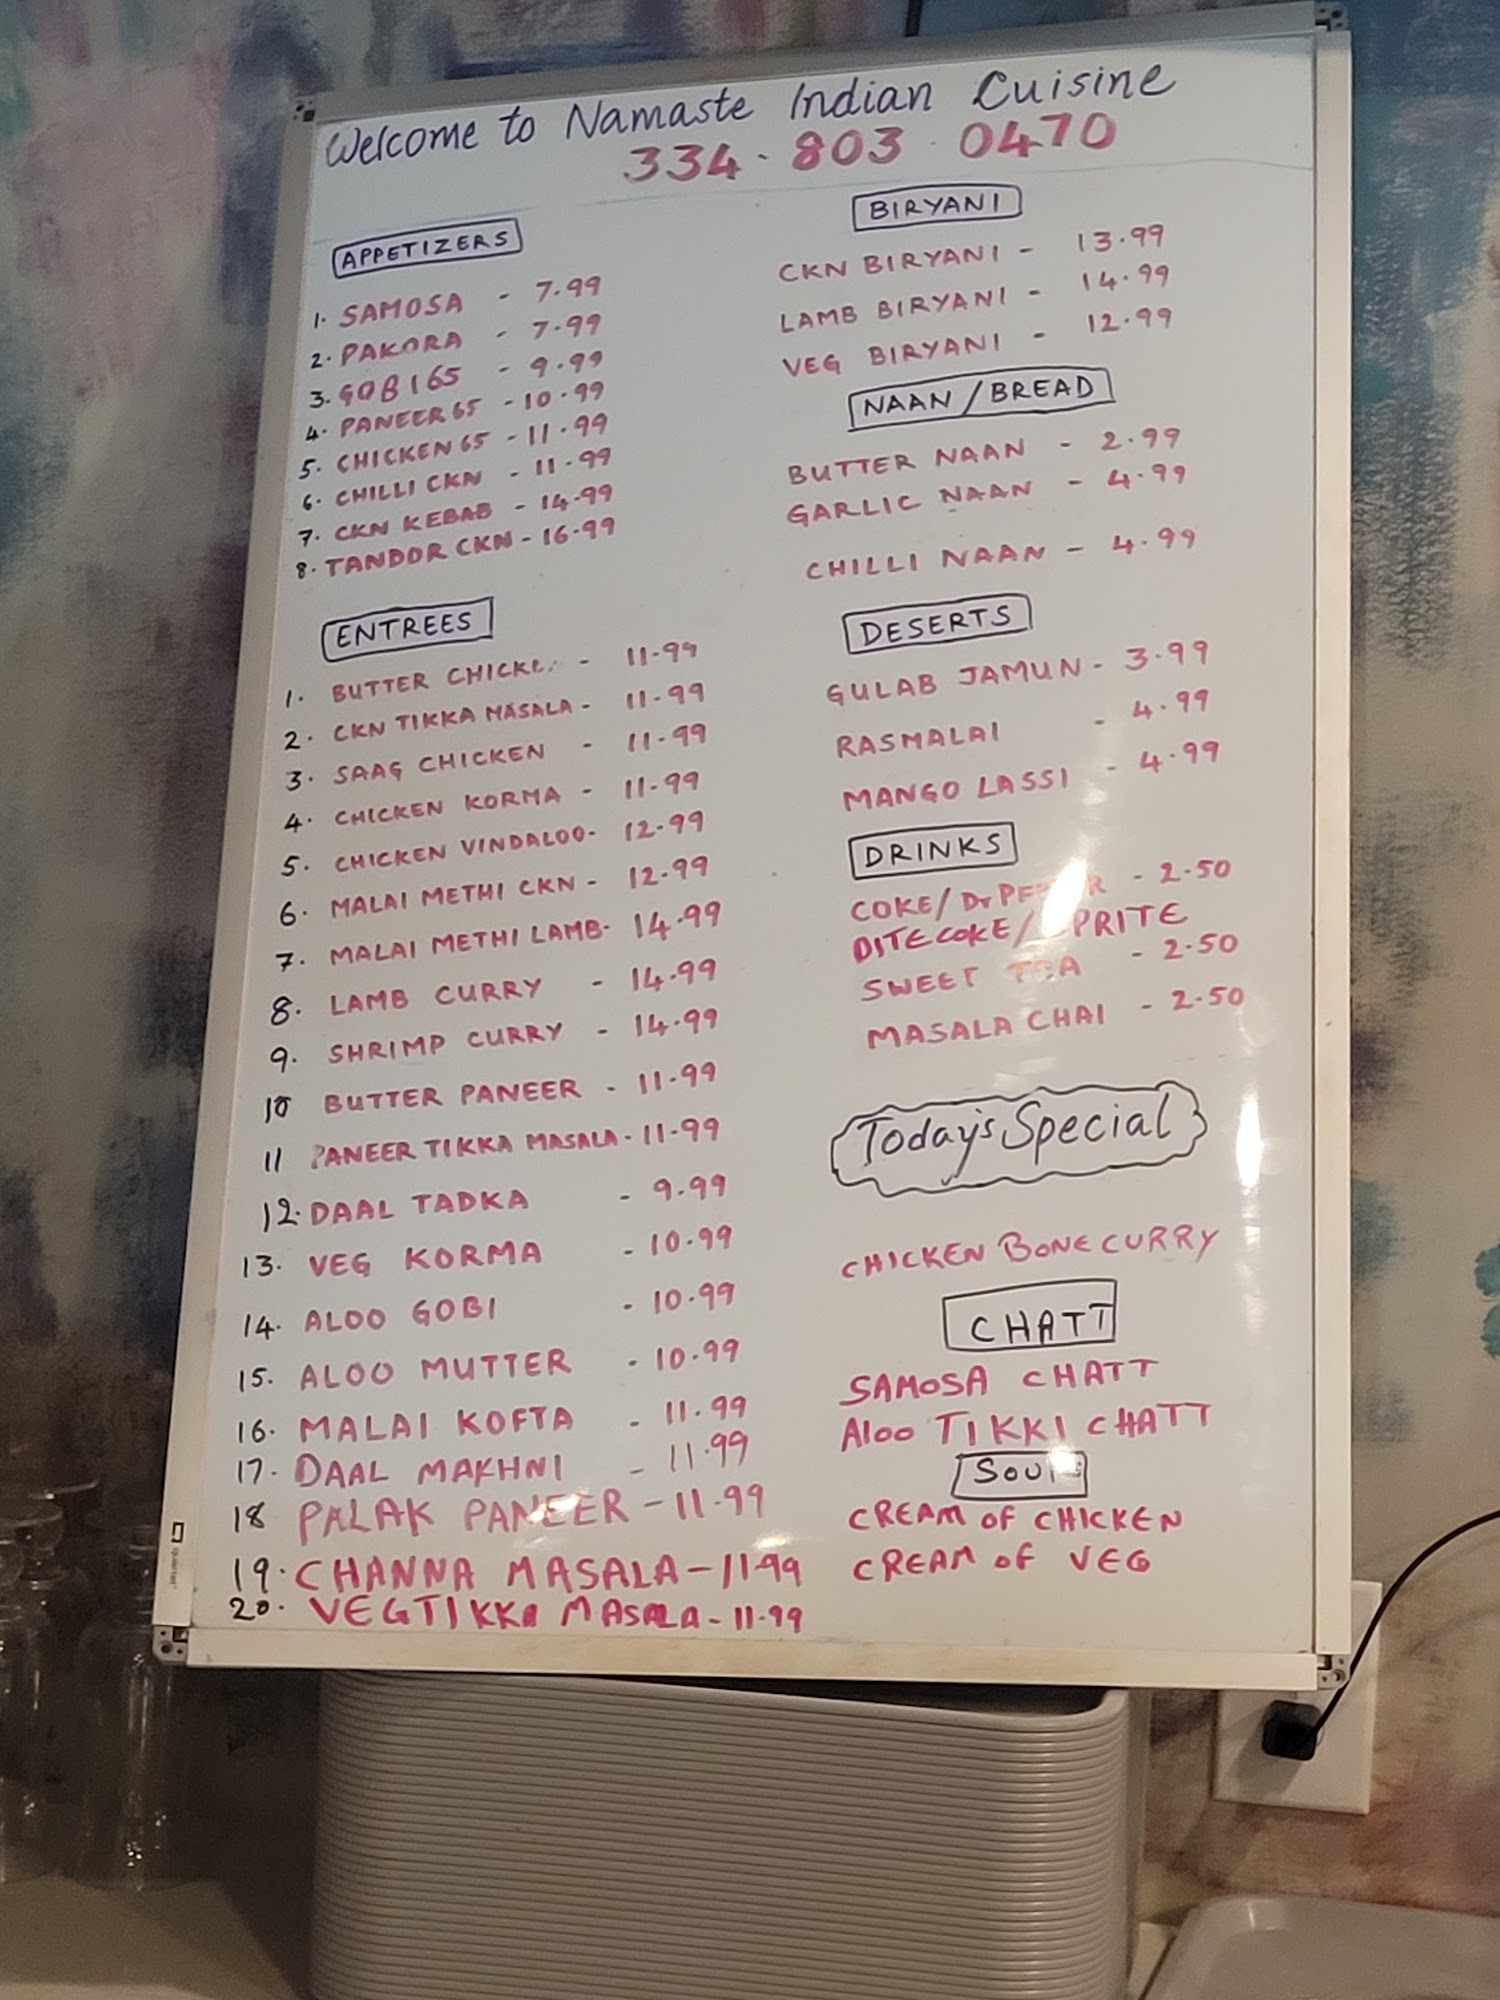 Welcome to Namaste Indian Cuisine
334-803-0470
APPETIZERS
1. SAMOSA - 7.99
2. PAKORA - 7.99
3. GOBI 65 - 9.99
4. PANEER 65 - 10.99
5. CHICKEN 65 - 11.99
6. CHILLI CKN - 11.99
7. CKN KEBAB - 14.99
8. TANDOR CKN - 16.99
ENTREES
1. BUTTER - 11.99
2. CKN TIKKA MASALA - 11.99
3. SAAG CHICKEN - 11.99
4. CHICKEN KORMA - 11.99
5. CHICKEN VINDALOO - 12.99
6. MALAI METHI CKN - 12.99
7. MALAI METHI LAMB - 14.99
8. LAMB CURRY - 14.99
9. SHRIMP CURRY - 14.99
10 BUTTER PANEER - 11.99
11 PANEER TIKKA MASALA - 11.99
12. DAAL TADKA - 9.99
13. VEG KORMA - 10.99
14. ALOO GOBI - 10.99
15. ALOO MUTTER - 10.99
16. MALAI KOFTA - 11.99
17. DAAL MAKHNI - 11.99
18 PALAK PANEER - 11.99
19. CHANNA MASALA - 11.99
20. VEG TIKKA MASALA - 11.99
BIRYANI
CKN BIRYANI - 13.99
LAMB BIRYANI - 14.99
VEG BIRYANI - 12.99
NAAN / BREAD
BUTTER NAAN - 2.99
GARLIC NAAN - 4.99
CHILLI NAAN - 4.99
DESERTS
GULAB JAMUN - 3.99
RASMALAI - 4.99
MANGO LASSI - 4.99
DRINKS
COKE / Dr - 2.50
DITE COKE / SPRITE
SWEET TEA - 2.50
MASALA CHAI - 2.50
Today's Special
CHICKEN BONE CURRY
CHATT
SAMOSA CHATT
Aloo TIKKI CHATT
CREAM OF CHICKEN
CREAM OF VEG
quartet